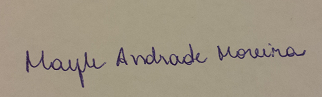 Mayle Andrade Moreira